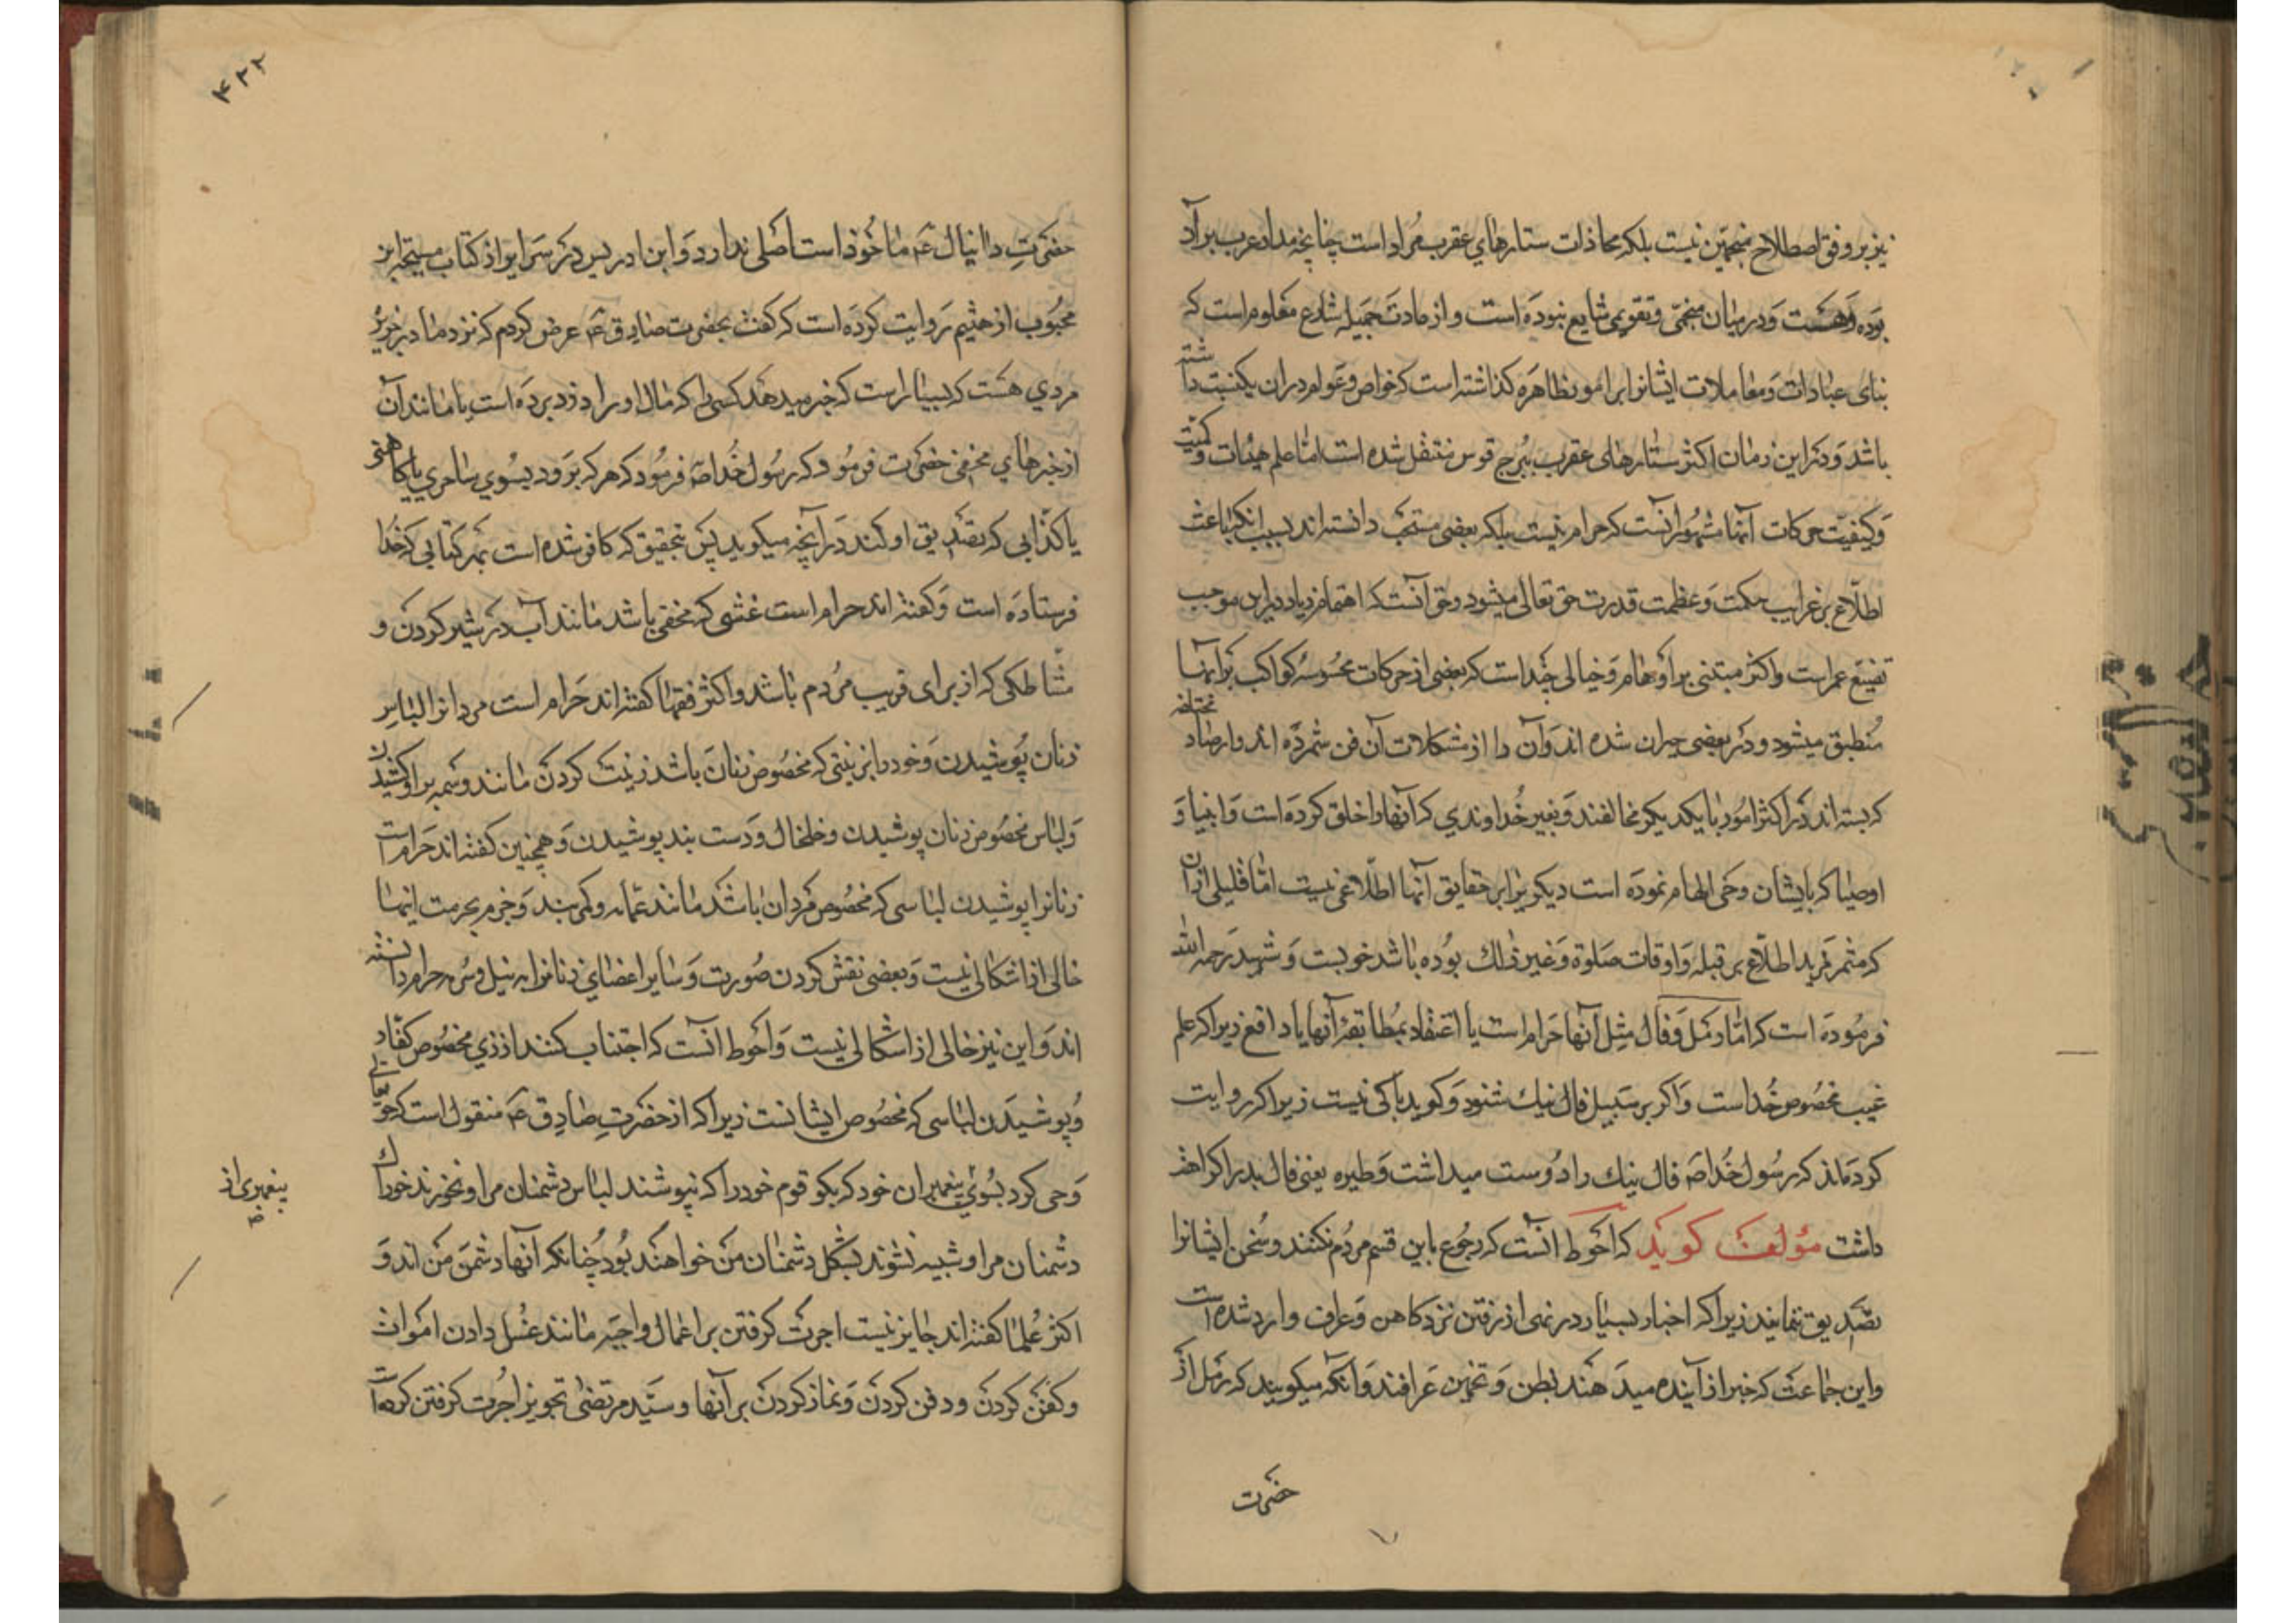 نیز بر وفق اصطلاح منجمین نیست بلکه محاذات ستارهای عقرب مراد است چنانچه مدار عرب بر آن
بوده وهست ودر میان منجمی وتقویمی شایع نبوده است و از عادت جمیله شارع معلوم است که
بنای عبادات ومعاملات ایشانرا بر امور ظاهره کذاشته است که خواص وعوام دران یکنسبت داشته
باشد ودر این زمان اکثر ستارهای عقرب ببرج قوس منتقل شده است اما علم هیئات وکمیت
وکیفیت حرکات آنها مشهور انست که حرام نیست بلکه بعضی مستحب دانسته اند بسبب انکه باعث
اطلاع بر غرایب حکمت وعظمت قدرت حق تعالی میشود وحق آنست که اهتمام زیاد در این موجب
تضییع عمر است واکثر مبتنی بر اوهام وخیالی چند است که بعضی از حرکات محسوسه کواکب بر آنها
منطبق میشود ودر بعضی حیران شده اند وآن را از مشکلات آن فن شمرده اند وارصاد مختلفه
که بسته اند در اکثر امور با یکدیکر مخالفند وبغیر خداوندی که آنها را خلق کرده است وانبیا و
اوصیا که بایشان وحی الهام نموده است دیکریرا بر حقایق آنها اطلاعی نیست اما قلیلی از آن
که مثمر مزید اطلاع بر قبله واوقات صلوة وغیر ذلك بوده باشد خوبست وشهید رحمه الله
فرموده است که اما رمل وفال مثل آنها حرام است با اعتقاد بمطابقه آنها با واقع زیرا که علم
غیب مخصوص خداست واکر بر سبیل فال نیك شنود وکوید باکی نیست زیرا که روایت
کرده‌اند که رسول خدا ص فال نیك را دوست میداشت وطیره یعنی فال بد را کراهت
داشت مؤلف کوید که احوط آنست که رجوع باین قسم مردم نکنند وسخن ایشانرا
تصدیق ننمایند زیرا که اخبار بسیار در نهی از رفتن نزد کاهن وعراف وارد شده است
واین جماعت که خبر از آینده میدهند بظن وتخمین عرافند وآنکه میکویند که رمل از
حضرت
۴۲۲
حضرت دانیال ع ماخوذ است اصلی ندارد وابن ادریس در سرایر از کتاب مسیخه ابن
محبوب از هثیم روایت کرده است که کفت بحضرت صادق ع عرض کردم که نزد ما در جزیره
مردی هست که بسیار است که خبر میدهد کسی را که مال او را دزد برده است یا مانند آن
از خبرهای مخفی حضرت فرمود که رسول خدا ص فرمود که هر که برود بسوی ساحری یا کاهنی
یا کذابی که تصدیق او کند در آنچه میکوید پس بتحقیق که کافر شده است بهر کتابی که خدا
فرستاده است وکفته اند حرام است غشی که مخفی باشد مانند آب در شیر کردن و
مشاطکی که از برای فریب مردم باشد واکثر فقها کفته اند حرام است مردانرا لباس
زنان پوشیدن وخود را بزینتی که مخصوص زنان باشد زینت کردن مانند وسمه بر ابرو کشیدن
ولباس مخصوص زنان پوشیدن وخلخال ودست بند پوشیدن وهمچنین کفته اند حرام است
زنانرا پوشیدن لباسی که مخصوص مردان باشد مانند عمامه وکمربند وجزم بحرمت اینها
خالی از اشکالی نیست وبعضی نقش کردن صورت وسایر اعضای زنانرا به نیل وسرمه حرام دانسته
اند واین نیز خالی از اشکالی نیست واحوط انست که اجتناب کنند از زی مخصوص کفار
وپوشیدن لباسی که مخصوص ایشانست زیرا که از حضرت صادق ع منقول است که حق تعالی
وحی کرد بسوی پیغمبران خود که بکو قوم خود را که نپوشند لباس دشمنان مرا ونخورند خوراك
پیغمبری از
دشمنان مرا وشبیه نشوند بشکل دشمنان من خواهند بود چنانکه آنها دشمن من اند و
اکثر علما کفته اند جایز نیست اجرت کرفتن بر اعمال واجبه مانند غسل دادن اموات
وکفن کردن ودفن کردن ونماز کردن بر آنها وسید مرتضی تجویز اجرت کرفتن کرده است